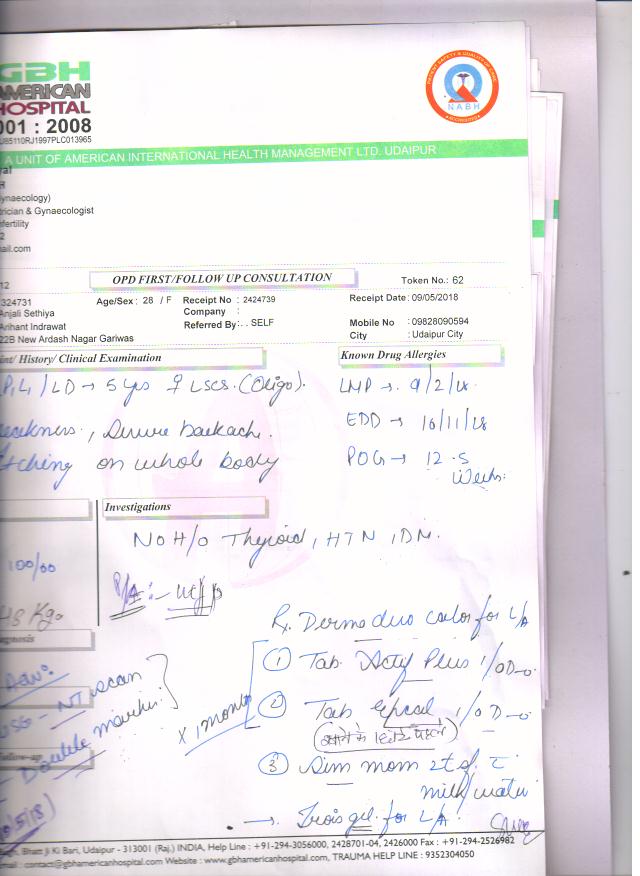 GBH
AMERICAN
HOSPITAL
001 : 2008
U85110RJ1997PLC013965
PATIENT SAFETY & QUALITY OF CARE
NABH
ACCREDITED
A UNIT OF AMERICAN INTERNATIONAL HEALTH MANAGEMENT LTD. UDAIPUR
ynaecology)
trician & Gynaecologist
nfertility
2
ail.com
12
OPD FIRST/FOLLOW UP CONSULTATION
Token No.: 62
324731
Age/Sex : 28 / F
Receipt No : 2424739
Receipt Date : 09/05/2018
Anjali Sethiya
Company :
Arihant Indrawat
Referred By : . . SELF
Mobile No : 09828090594
22B New Ardash Nagar Gariwas
City : Udaipur City
int/ History/ Clinical Examination
Known Drug Allergies
P1 L1 / LD → 5 yrs LSCS. (Oligo).
LMP → 9/2/18.
eakness, backache.
EDD → 16/11/18
tching on whole body
POG → 12.5
Weeks:
Investigations
No H/o Thyroid, HTN, DM.
100/60
P/A:-
48 Kgs
agnosis
Rx. Dermaduo for L/A
Adv:
① Tab. Plus 1/OD
USG - NT scan
Double marker
x 1 month
② Tab 1/OD
ollow-up
③ milk/water
→ gel for L/A
Bhatt Ji Ki Bari, Udaipur - 313001 (Raj.) INDIA, Help Line : +91-294-3056000, 2428701-04, 2426000 Fax : +91-294-2526982
email : contact@gbhamericanhospital.com Website : www.gbhamericanhospital.com, TRAUMA HELP LINE : 9352304050